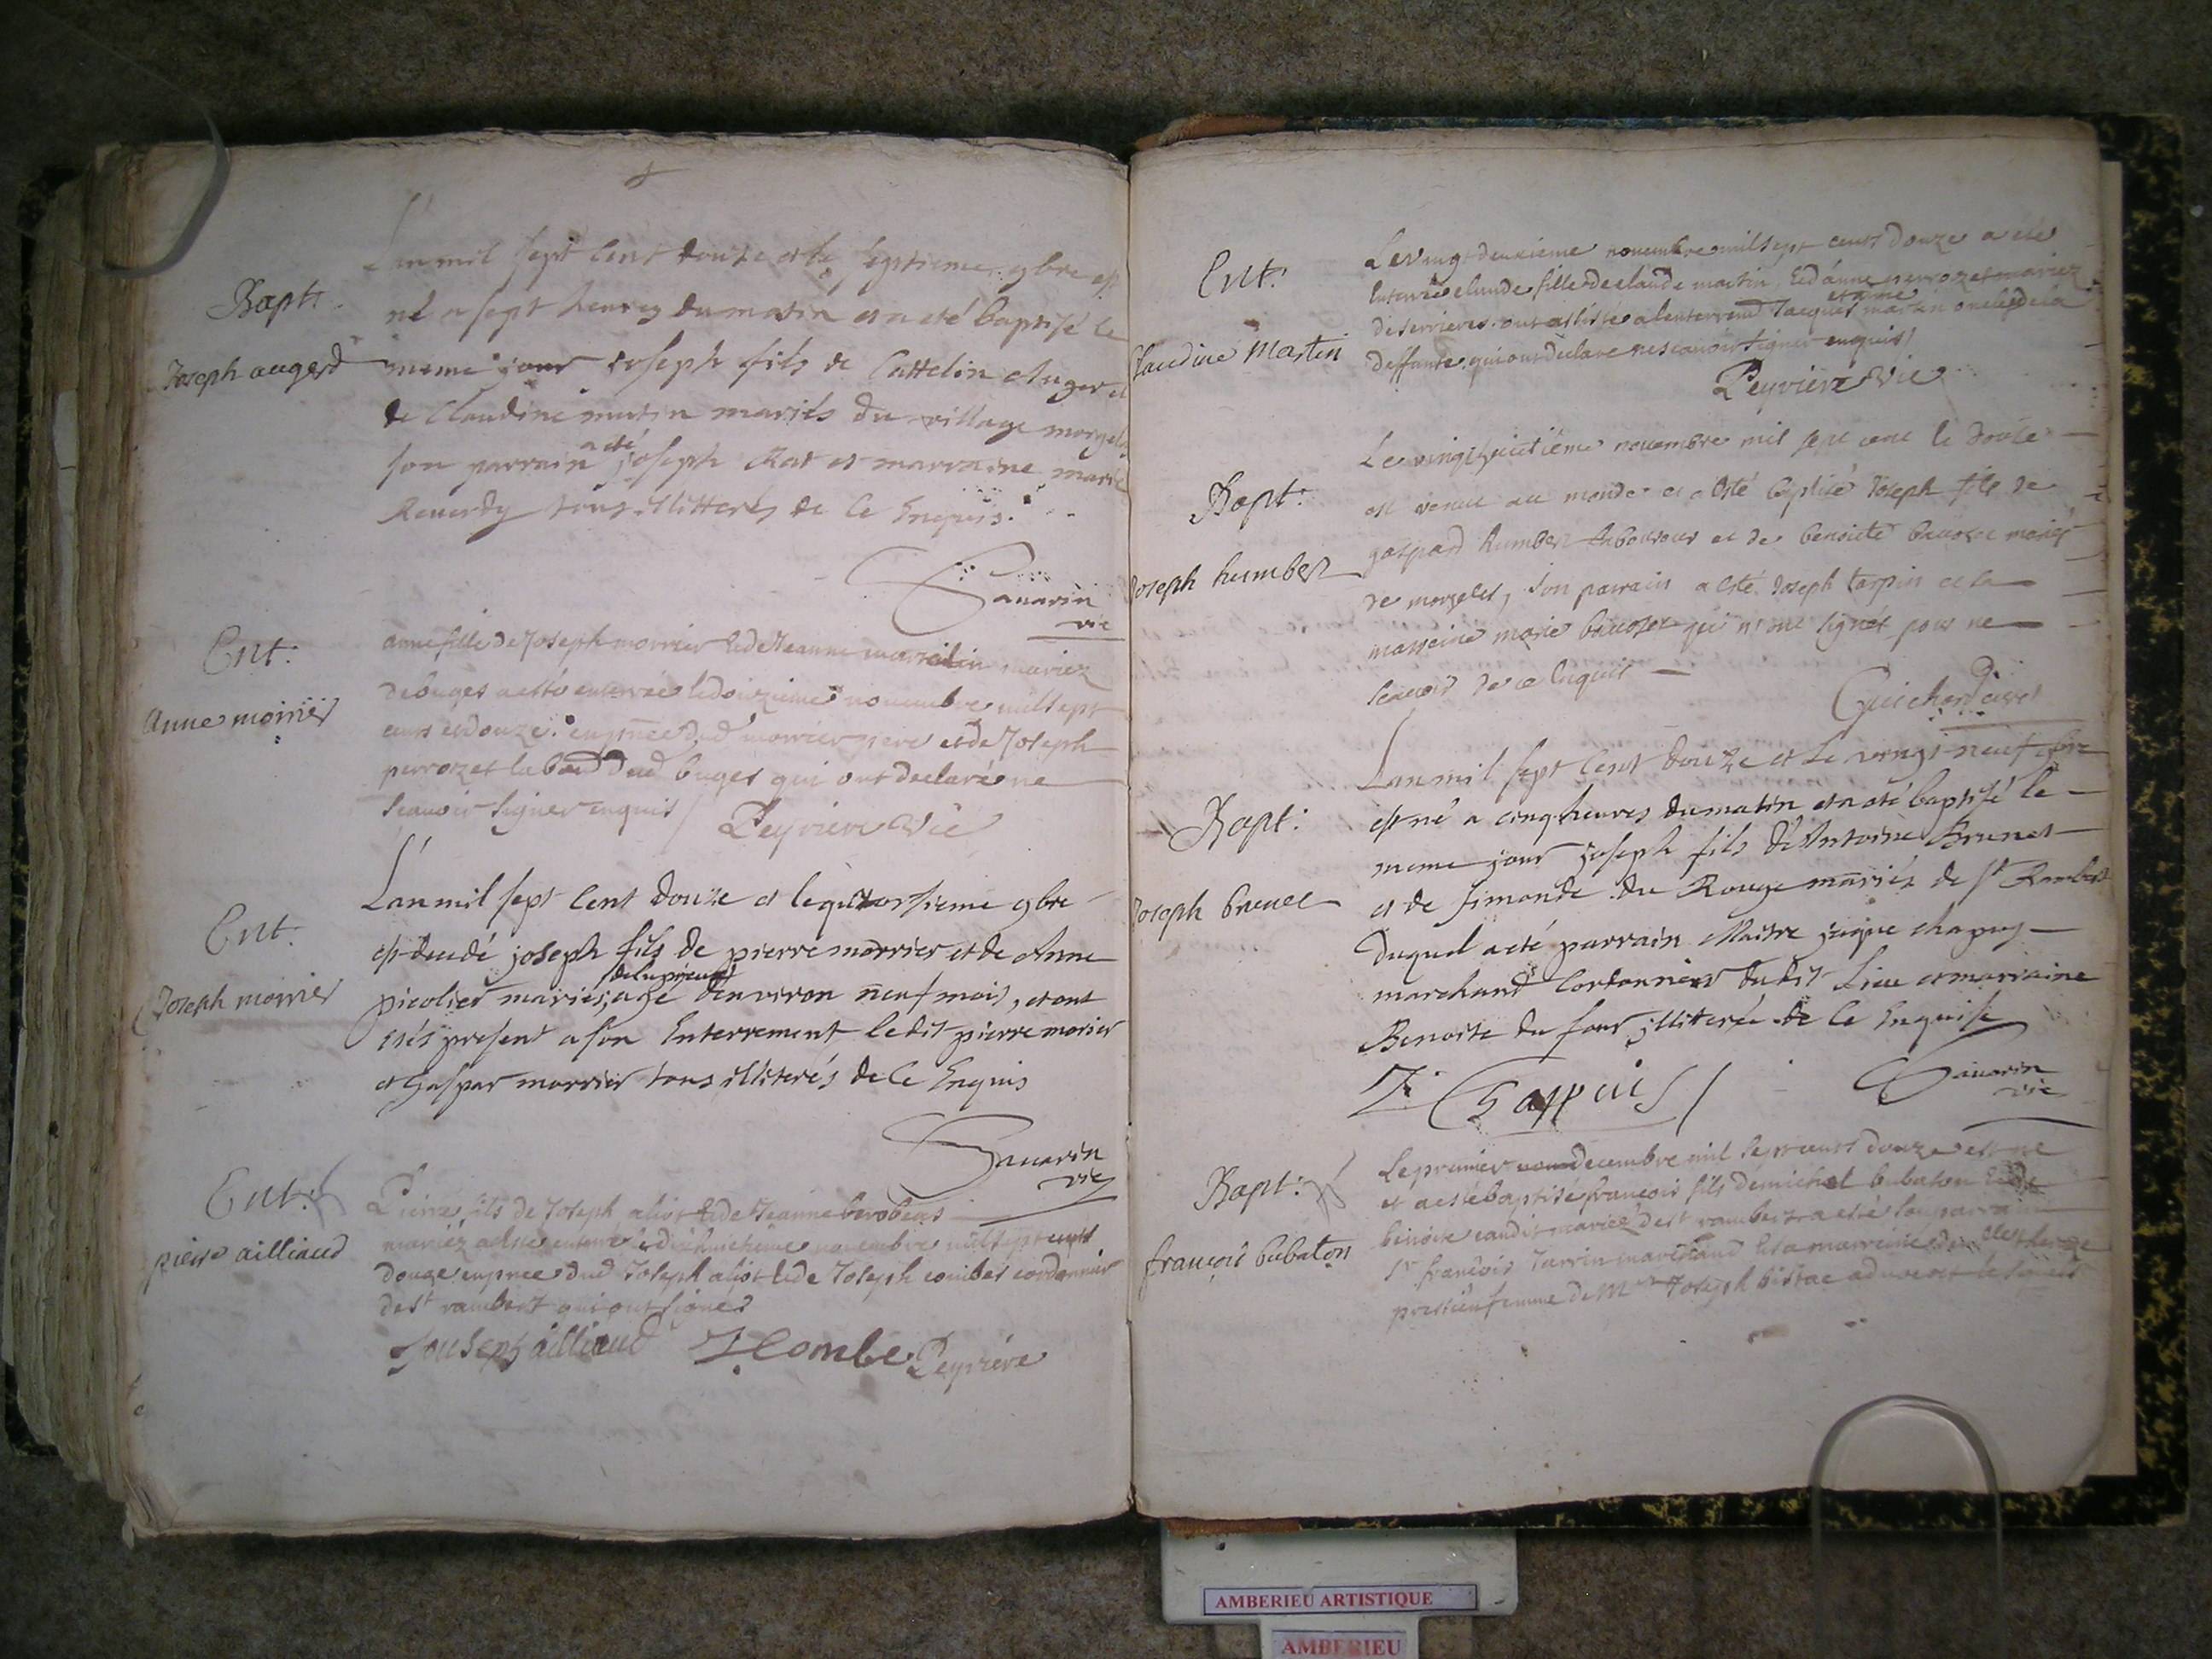 Bapt.
Joseph augerd
L'an mil sept cent douze et le septieme 9bre est
né a sept heures du matin et a eté baptisé le
meme jour Joseph fils de Cattelin Auger et
de Claudine mutin mariés du village morgelas
son parrain a été joseph Rat et marraine marie
Reverdy tous illitterés de ce Enquis.
Savarin
vic
Ent.
Anne morrier
anne fille de Joseph morrier Et de Jeanne mariez
de buges a esté enterrée le douzieme novembre mil sept
cens et douze. en pñce dud morrier pere et de Joseph
perrozet dud buges qui ont declaré ne
scavoir signer enquis / Peyriere vic
Ent.
Joseph morrier
L'an mil sept cent douze et le quatorsieme 9bre
est decedé joseph fils de pierre morrier et de Anne
picolier mariés, de la prieure agé d'environ neuf mois, et ont
etés present a son Enterrement ledit pierre morier
et Gaspar morrier tous illiterés de Ce Enquis
Savarin
vic
Ent.
pierre ailliaud
Pierre fils de Joseph aliot Et de Jeanne
mariez a esté enterré le dixhuictieme novembre mil sept cents
douze en pñce dud Joseph aliot Et de Joseph combes cordonnier
de st rambert qui ont signes
Jouseph ailliaud J Combe Peyriere
Ent.
Claudine Martin
Le vingt deuxieme novembre mil sept cents douze a été
Enterrée claude fille de claude martin Et d'anne perrozet mariez
de serrieres. ont assisté a lenterremt Jacques martin oncles de la
deffunte. qui ont declare ne scavoir signer enquis /
Peyriere vic
Bapt.
Joseph humbert
Le vingt huictième novembre mil sept cent le douse
est venu au monde et a esté baptisé Joseph fils de
gaspard humbert labourour et de benoite mariés
de morgelas, son parrain a esté Joseph tarpin et la
marreine marie qui n'ont signés pour ne
scavoir de ce Enquis
Guichard
Bapt.
Joseph brunet
L'an mil sept cent douze et le vingt-neuf 9bre
est né a cinq heures du matin et a eté baptisé le
meme jour joseph fils d'Antoine Brunet
et de simonde du Rouge mariés de st Rambert
duquel a eté parrain Maitre chapuy
marchand Cordonnier dudit Lieu et marraine
Benoite du four illiterée de Ce Enquise
Chappuis /
Savarin
vic
Bapt.
françois bubaton
Le premier decembre mil sept cents douze est né
et a esté baptisé françois fils de michel bubaton Et de
benoite mariez de st rambert a esté son parrain
sr françois marchand Et sa marreine
femme de Mre Joseph advocat
AMBERIEU ARTISTIQUE
AMBERIEU